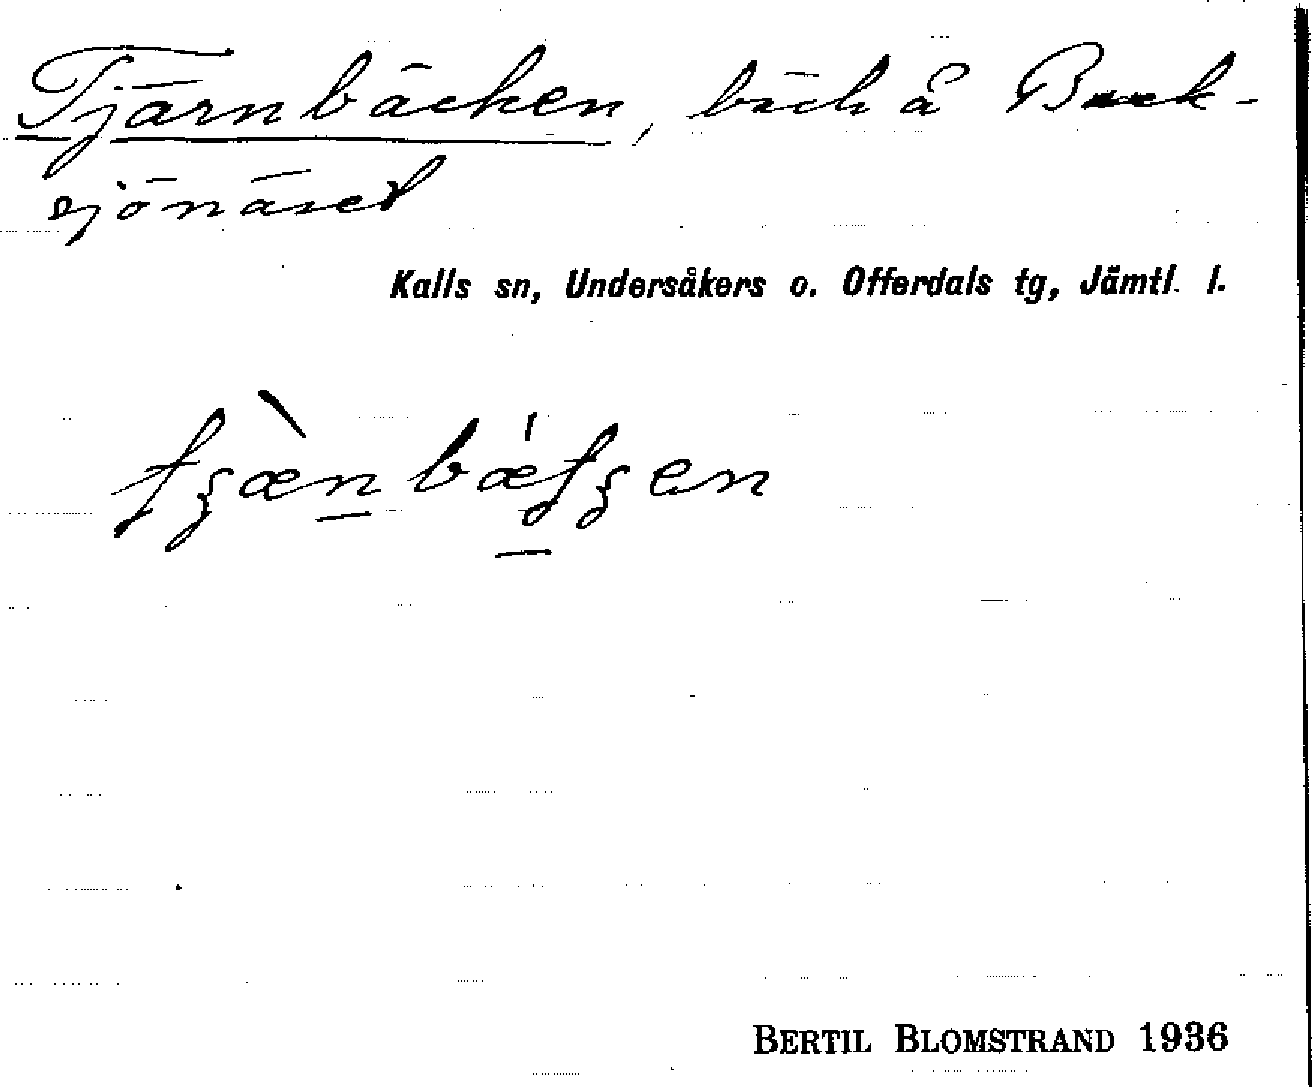 Tjärnbäcken, bäck å Buck-
sjönäset
Kalls sn, Undersåkers o. Offerdals tg, Jämtl. l.
BERTIL BLOMSTRAND 1936